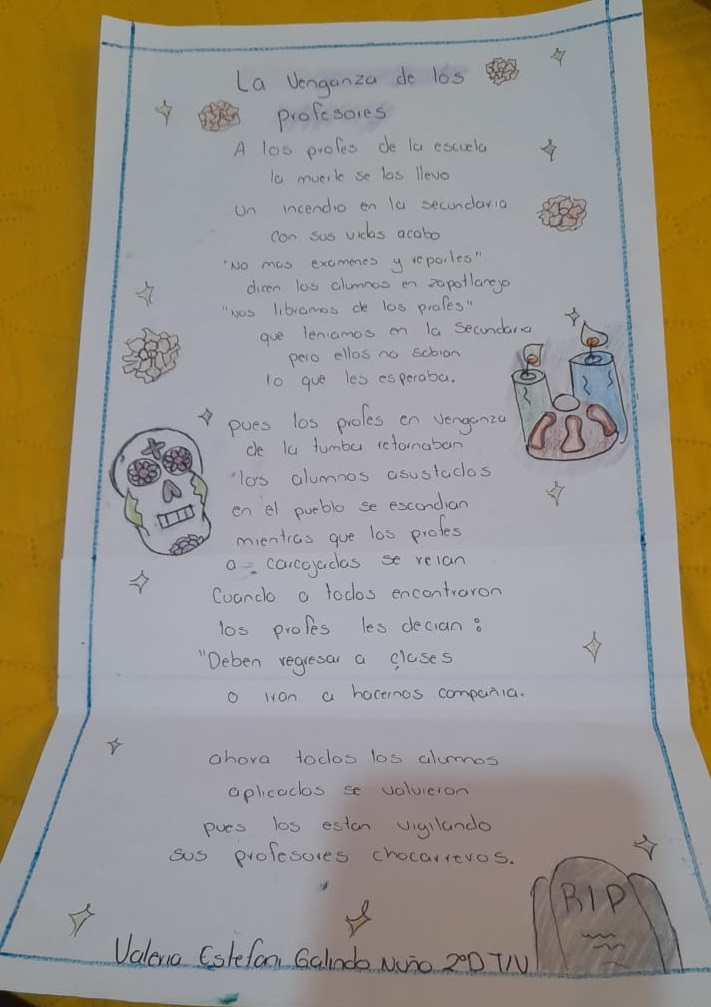 La Venganza de los
profesores
A los profes de la escuela
la muerte se los llevo
un incendio en la secundaria
con sus vidas acabo
"No mas examenes y reportes"
dicen los alumnos en zapotlanejo
"nos libramos de los profes"
que teniamos en la secundaria
pero ellos no sabian
lo que les esperaba.
pues los profes en venganza
de la tumba retornaban
"los alumnos asustados
en el pueblo se escondian
mientras que los profes
a carcajadas se reian
Cuando a todos encontraron
los profes les decian:
"Deben regresar a clases
o iran a hacernos compañia.
ahora todos los alumnos
aplicados se volvieron
pues los estan vigilando
sus profesores chocarreros.
RIP
Valeria Estefani Galindo Nuño 2°D T/V